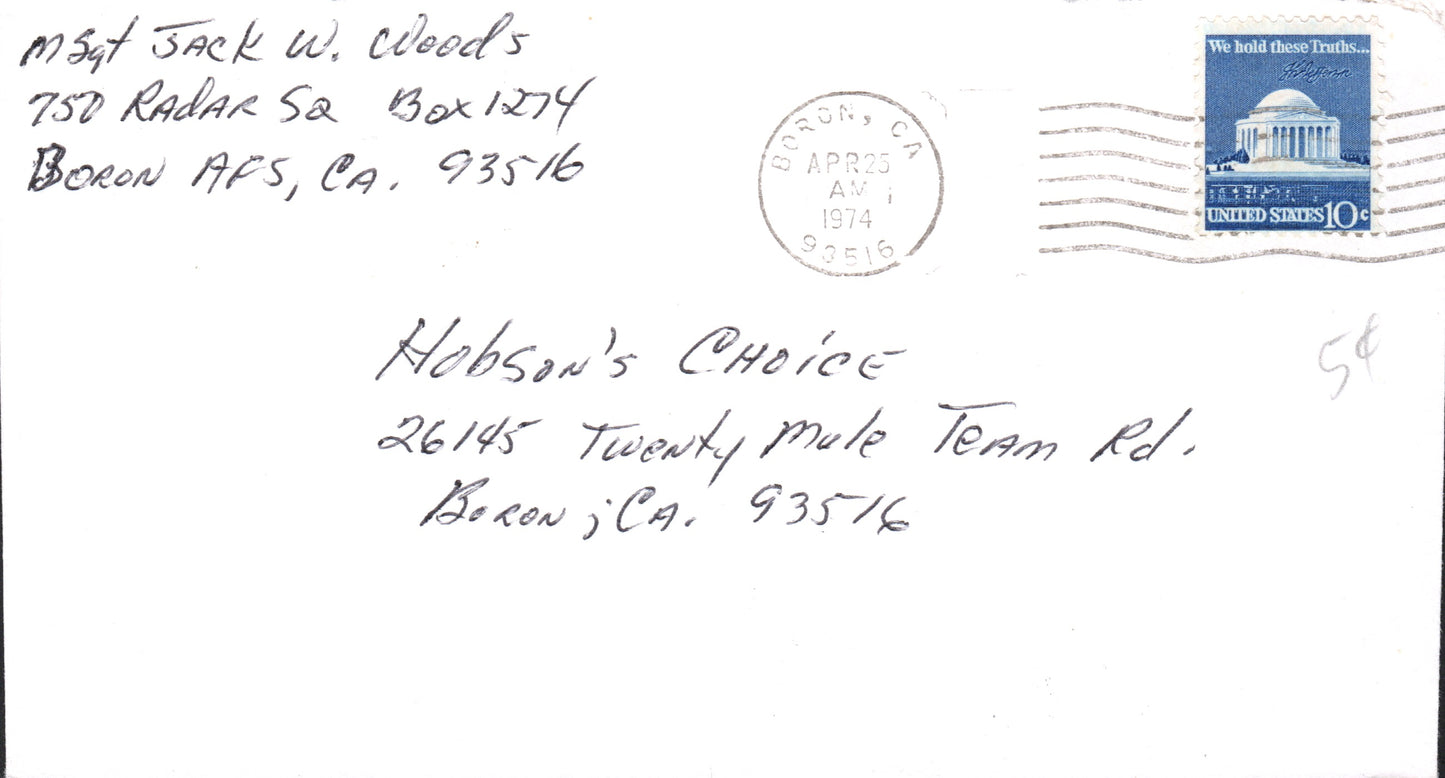 MSgt JACK W. Woods
750 RADAR SQ Box 1274
BORON AFS, CA. 93516
BORON, CA
APR 25
AM
1974
93516
We hold these Truths...
Th Jefferson
UNITED STATES 10c
HObSON'S CHOICE
26145 Twenty Mule TEAM Rd.
BORON, CA. 93516
5¢